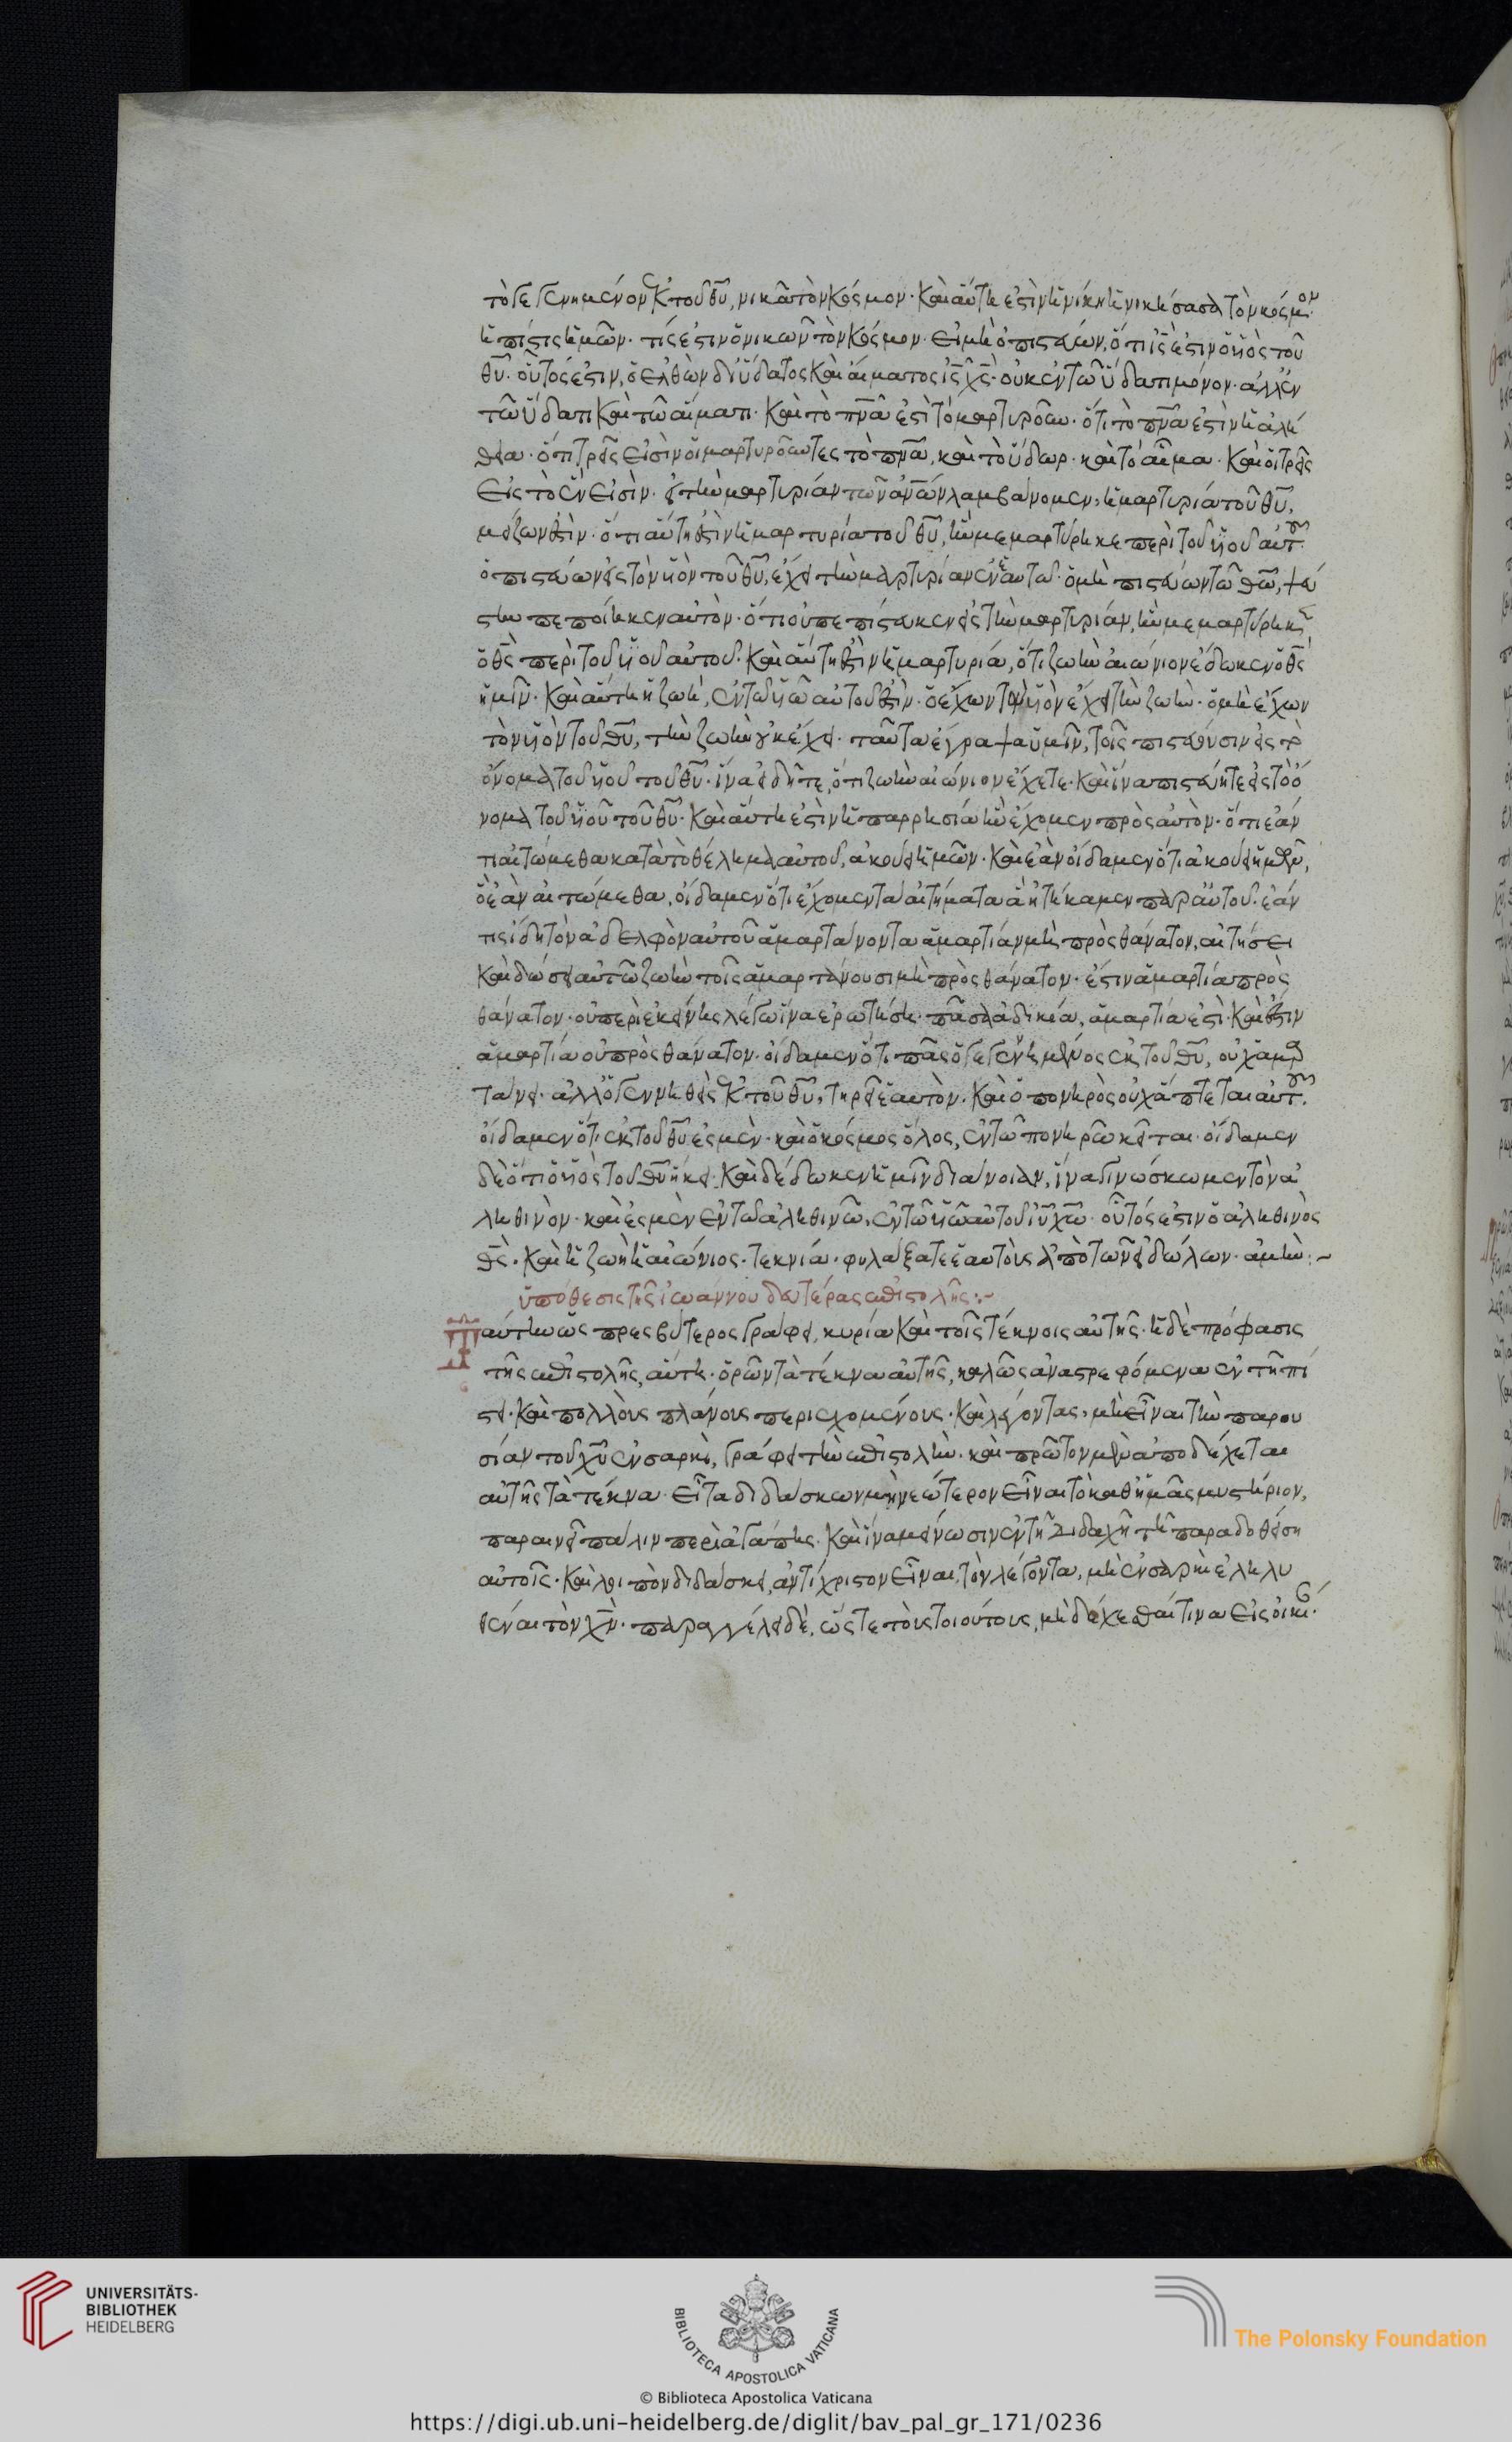 τὸ γεγενημένον ἐκ τοῦ θυ, νικᾶ τὸν κόσμον· καὶ αὕτη ἐστὶν ἡ νίκη ἡ νικήσασα τὸν κόσμον·
ἡ πίστις ἡμῶν· τίς ἐστιν ὁ νικῶν τὸν κόσμον· εἰ μὴ ὁ πιστεύων, ὅτι ις ἐστιν ὁ υἱὸς τοῦ
θυ· οὗτός ἐστιν, ὁ ἐλθὼν δι' ὕδατος καὶ αἵματος ις χς· οὐκ ἐν τῶ ὕδατι μόνον· ἀλλ' ἐν
τῶ ὕδατι καὶ τῶ αἵματι· καὶ τὸ πνα ἐστὶ τὸ μαρτυροῦν· ὅτι τὸ πνα ἐστὶν ἡ ἀλή
θεια· ὅτι τρεῖς εἰσὶν οἱ μαρτυροῦντες τὸ πνα, καὶ τὸ ὕδωρ· καὶ τὸ αἷμα· καὶ οἱ τρεῖς
εἰς τὸ ἕν εἰσὶν· εἰ τὴν μαρτυρίαν τῶν ανων λαμβάνομεν, ἡ μαρτυρία τοῦ θυ,
μείζων ἐστὶν· ὅτι αὕτη ἐστὶν ἡ μαρτυρία τοῦ θυ, ἣν μεμαρτύρηκε περὶ τοῦ υἱοῦ αὐτοῦ·
ὁ πιστεύων εἰς τὸν υἱὸν τοῦ θυ, ἔχει τὴν μαρτυρίαν ἐν ἑαυτῶ· ὁ μὴ πιστεύων τῶ θω, ψεύ
στην πεποίηκεν αὐτὸν· ὅτι οὐ πεπίστευκεν εἰς τὴν μαρτυρίαν, ἣν μεμαρτύρηκεν
ὁ θς περὶ τοῦ υἱοῦ αὐτοῦ· καὶ αὕτη ἐστὶν ἡ μαρτυρία, ὅτι ζωὴν αἰώνιον ἔδωκεν ὁ θς
ἡμῖν· καὶ αὕτη ἡ ζωὴ, ἐν τῶ υἱῶ αὐτοῦ ἐστὶν· ὁ ἔχων τὸν υἱὸν ἔχει τὴν ζωὴν· ὁ μὴ ἔχων
τὸν υἱὸν τοῦ θυ, τὴν ζωὴν οὐκ ἔχει· ταῦτα ἔγραψα ὑμῖν, τοῖς πιστεύουσιν εἰς τὸ
ὄνομα τοῦ υἱοῦ τοῦ θυ· ἵνα εἰδῆτε, ὅτι ζωὴν αἰώνιον ἔχετε· καὶ ἵνα πιστεύητε εἰς τὸ ὄ
νομα τοῦ υἱοῦ τοῦ θυ· καὶ αὕτη ἐστὶν ἡ παρρησία ἣν ἔχομεν πρὸς αὐτὸν· ὅτι ἐάν
τι αἰτώμεθα κατὰ τὸ θέλημα αὐτοῦ, ἀκούει ἡμῶν· καὶ ἐὰν οἴδαμεν ὅτι ἀκούει ἡμῶν,
ὃ ἐὰν αἰτώμεθα, οἴδαμεν ὅτι ἔχομεν τὰ αἰτήματα ἃ ᾐτήκαμεν παρ' αὐτοῦ· ἐάν
τις ἴδη τὸν ἀδελφὸν αὐτοῦ ἁμαρτάνοντα ἁμαρτίαν μὴ πρὸς θάνατον, αἰτήσει
καὶ δώσει αὐτῶ ζωὴν τοῖς ἁμαρτάνουσι μὴ πρὸς θάνατον· ἔστιν ἁμαρτία πρὸς
θάνατον· οὐ περὶ ἐκείνης λέγω ἵνα ἐρωτήση· πᾶσα ἀδικία, ἁμαρτία ἐστὶ· καὶ ἔστιν
ἁμαρτία οὐ πρὸς θάνατον· οἴδαμεν ὅτι πᾶς ὁ γεγεννημένος ἐκ τοῦ θυ, οὐχ ἁμαρ
τάνει· ἀλλ' ὁ γεννηθεὶς ἐκ τοῦ θυ, τηρεῖ ἑαυτὸν· καὶ ὁ πονηρὸς οὐχ ἅπτεται αὐτοῦ·
οἴδαμεν ὅτι ἐκ τοῦ θυ ἐσμὲν· καὶ ὁ κόσμος ὅλος, ἐν τῶ πονηρῶ κεῖται· οἴδαμεν
δὲ ὅτι ὁ υἱὸς τοῦ θυ ἥκει· καὶ δέδωκεν ἡμῖν διάνοιαν, ἵνα γινώσκωμεν τὸν ἀ
ληθινὸν· καὶ ἐσμὲν ἐν τῶ ἀληθινῶ, ἐν τῶ υἱῶ αὐτοῦ ιυ χω· οὗτός ἐστιν ὁ ἀληθινὸς
θς· καὶ ἡ ζωὴ ἡ αἰώνιος· τεκνία· φυλάξατε ἑαυτοὺς ἀπὸ τῶν εἰδώλων· ἀμὴν:~
ὑπόθεσις τῆς ἰωάννου δευτέρας ἐπιστολῆς:~
Ταύτην ὡς πρεσβύτερος γράφει, κυρία καὶ τοῖς τέκνοις αὐτῆς· ἡ δὲ πρόφασις
τῆς ἐπιστολῆς, αὕτη· ὁρῶν τὰ τέκνα αὐτῆς, καλῶς ἀναστρεφόμενα ἐν τῆ πί
στει· καὶ πολλοὺς πλάνους περιερχομένους· καὶ λέγοντας, μὴ εἶναι τὴν παρου
σίαν τοῦ χυ ἐν σαρκὶ, γράφει τὴν ἐπιστολὴν· καὶ πρῶτον μὲν ἀποδέχεται
αὐτῆς τὰ τέκνα· εἶτα διδάσκων μὴ νεώτερον εἶναι τὸ καθ' ἡμᾶς μυστήριον,
παραινεῖ πάλιν περὶ ἀγάπης· καὶ ἵνα μείνωσιν ἐν τῆ διδαχῆ τῆ παραδοθείση
αὐτοῖς· καὶ λοιπὸν διδάσκει, ἀντίχριστον εἶναι, τὸν λέγοντα, μὴ ἐν σαρκὶ ἐληλυ
θέναι τὸν χν· παραγγέλει δὲ, ὥστε τοὺς τοιούτους, μὴ δέχεσθαί τινα εἰς οἰκί·
UNIVERSITÄTS-
BIBLIOTHEK
HEIDELBERG
BIBLIOTECA APOSTOLICA VATICANA
© Biblioteca Apostolica Vaticana
The Polonsky Foundation
https://digi.ub.uni-heidelberg.de/diglit/bav_pal_gr_171/0236